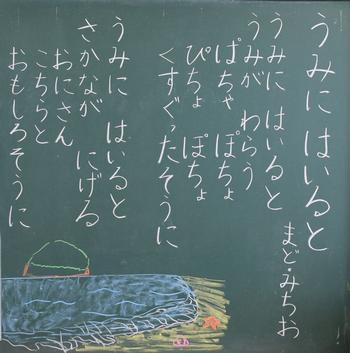 うみに はいると
まど・みちお
うみに はいると
うみが わらう
ぱちゃ ぽちょ
ぴちょ ぽちょ
くすぐったそうに
うみに はいると
さかなが にげる
おにさん
こちらと
おもしろそうに